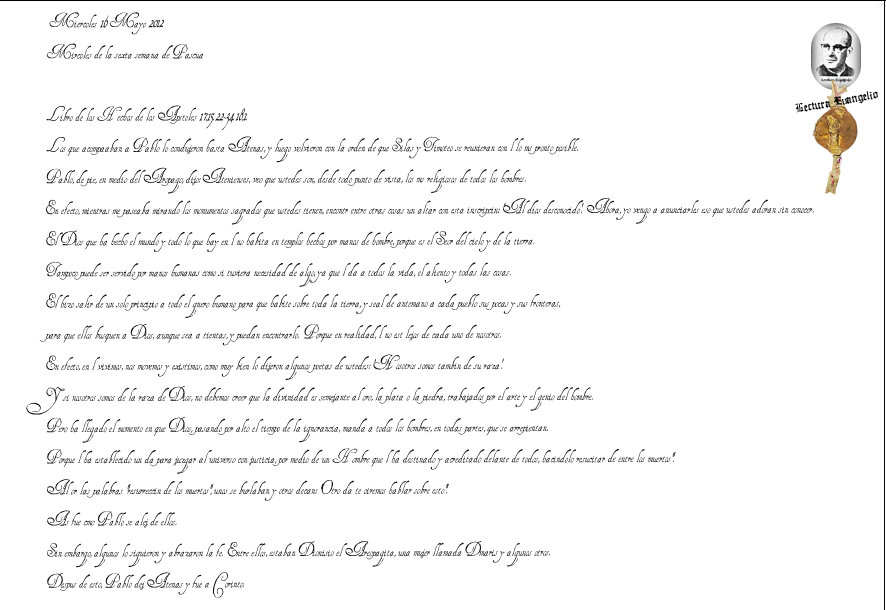 Miercoles 16 Mayo 2012
Mircoles de la sexta semana de Pascua
Lectura Evangelio
Libro de los Hechos de los Apstoles 17,15.22-34.18,1.
Los que acompaaban a Pablo lo condujeron hasta Atenas, y luego volvieron con la orden de que Silas y Timoteo se reunieran con l lo ms pronto posible.
Pablo, de pie, en medio del Arepago, dijo: Atenienses, veo que ustedes son, desde todo punto de vista, los ms religiosos de todos los hombres.
En efecto, mientras me paseaba mirando los monumentos sagrados que ustedes tienen, encontr entre otras cosas un altar con esta inscripcin: 'Al dios desconocido'. Ahora, yo vengo a anunciarles eso que ustedes adoran sin conocer.
El Dios que ha hecho el mundo y todo lo que hay en l no habita en templos hechos por manos de hombre, porque es el Seor del cielo y de la tierra.
Tampoco puede ser servido por manos humanas como si tuviera necesidad de algo, ya que l da a todos la vida, el aliento y todas las cosas.
El hizo salir de un solo principio a todo el gnero humano para que habite sobre toda la tierra, y seal de antemano a cada pueblo sus pocas y sus fronteras,
para que ellos busquen a Dios, aunque sea a tientas, y puedan encontrarlo. Porque en realidad, l no est lejos de cada uno de nosotros.
En efecto, en l vivimos, nos movemos y existimos, como muy bien lo dijeron algunos poetas de ustedes: 'Nosotros somos tambin de su raza'.
Y si nosotros somos de la raza de Dios, no debemos creer que la divinidad es semejante al oro, la plata o la piedra, trabajados por el arte y el genio del hombre.
Pero ha llegado el momento en que Dios, pasando por alto el tiempo de la ignorancia, manda a todos los hombres, en todas partes, que se arrepientan.
Porque l ha establecido un da para juzgar al universo con justicia, por medio de un Hombre que l ha destinado y acreditado delante de todos, hacindolo resucitar de entre los muertos".
Al or las palabras "resurreccin de los muertos", unos se burlaban y otros decan: Otro da te oiremos hablar sobre esto".
As fue cmo Pablo se alej de ellos.
Sin embargo, algunos lo siguieron y abrazaron la fe. Entre ellos, estaban Dionisio el Areopagita, una mujer llamada Dmaris y algunos otros.
Despus de esto, Pablo dej Atenas y fue a Corinto.